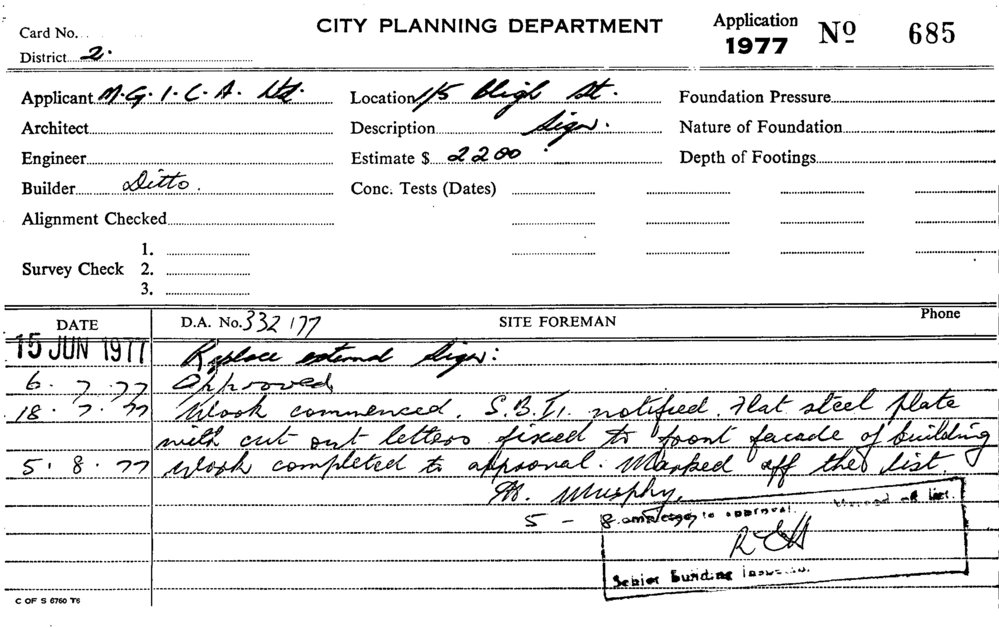 CITY PLANNING DEPARTMENT
Application 1977 Nº 685
Card No.
District 2.
Applicant M.G.I.C.A. Ltd. Location 1/5 Bligh St. Foundation Pressure
Architect Description Sign. Nature of Foundation
Engineer Estimate $ 2200 Depth of Footings
Builder Ditto. Conc. Tests (Dates)
Alignment Checked
Survey Check 1. 2. 3.
DATE D.A. No. 332/77 SITE FOREMAN Phone
15 JUN 1977 Replace external Sign:
6. 7. 77 Approved
18. 7. 77 Work commenced. S.B.I. notified. Flat steel plate
with cut out letters fixed to front facade of building
5. 8. 77 Work completed to approval. Marked off the list.
M. Murphy.
5 - 8
completed to approval. Marked off list.
Senior Building Inspector
C OF S 6760 T6